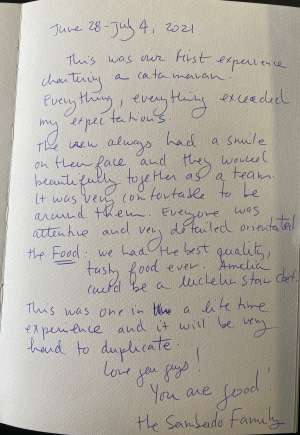 June 28-July 4, 2021
This was our first experience
chartering a catamaran.
Everything, everything exceeded
my expectations.
The crew always had a smile
on their face and they worked
beautifully together as a team.
It was very comfortable to be
around them. Everyone was
attentive and very detailed orientated
the Food: we had the best quality,
tasty food ever. Amelia
could be a Michelin star chef.
This was one in a life time
experience and it will be very
hard to duplicate.
Love you guys!
You are good!
the Family